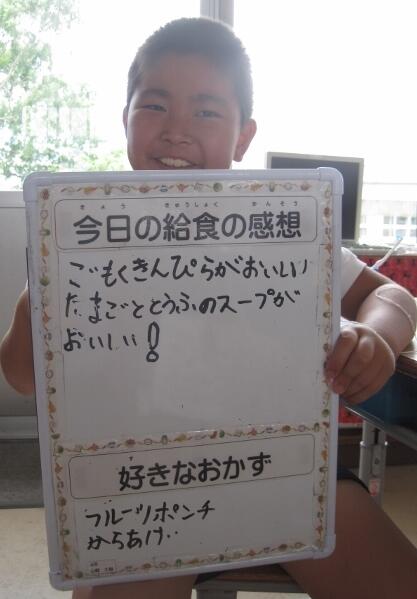 きょう きゅうしょく かんそう
今日の給食の感想
ごもくきんぴらがおいしい
たまごととうふのスープが
おいしい!
す
好きなおかず
フルーツポンチ
からあげ